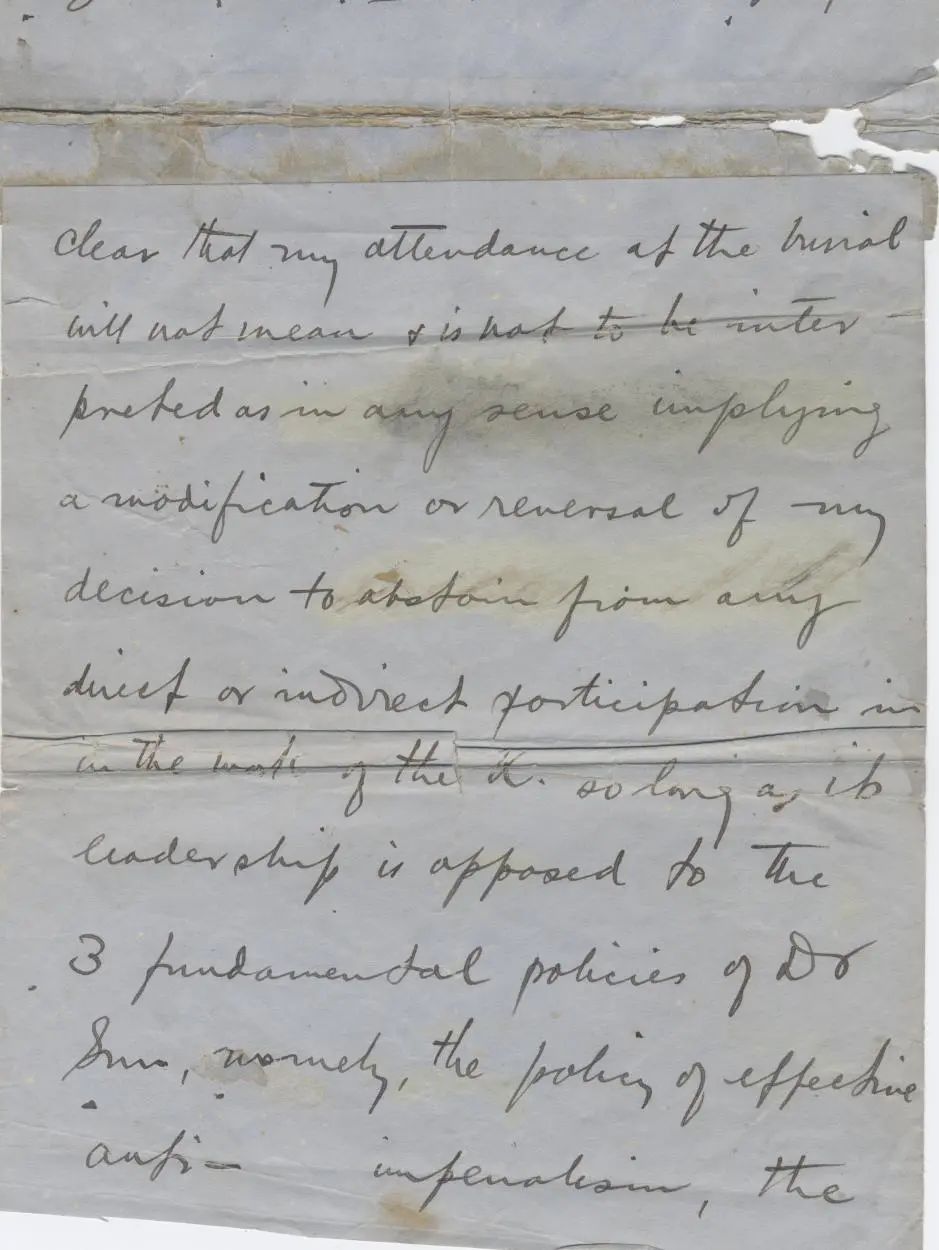 clear that my attendance at the burial
will not mean & is not to be inter-
preted as in any sense implying
a modification or reversal of my
decision to abstain from any
direct or indirect participation in
in the work of the K. so long as its
leadership is opposed to the
3 fundamental policies of Dr
Sun, namely, the policy of effective
anti- imperialism, the